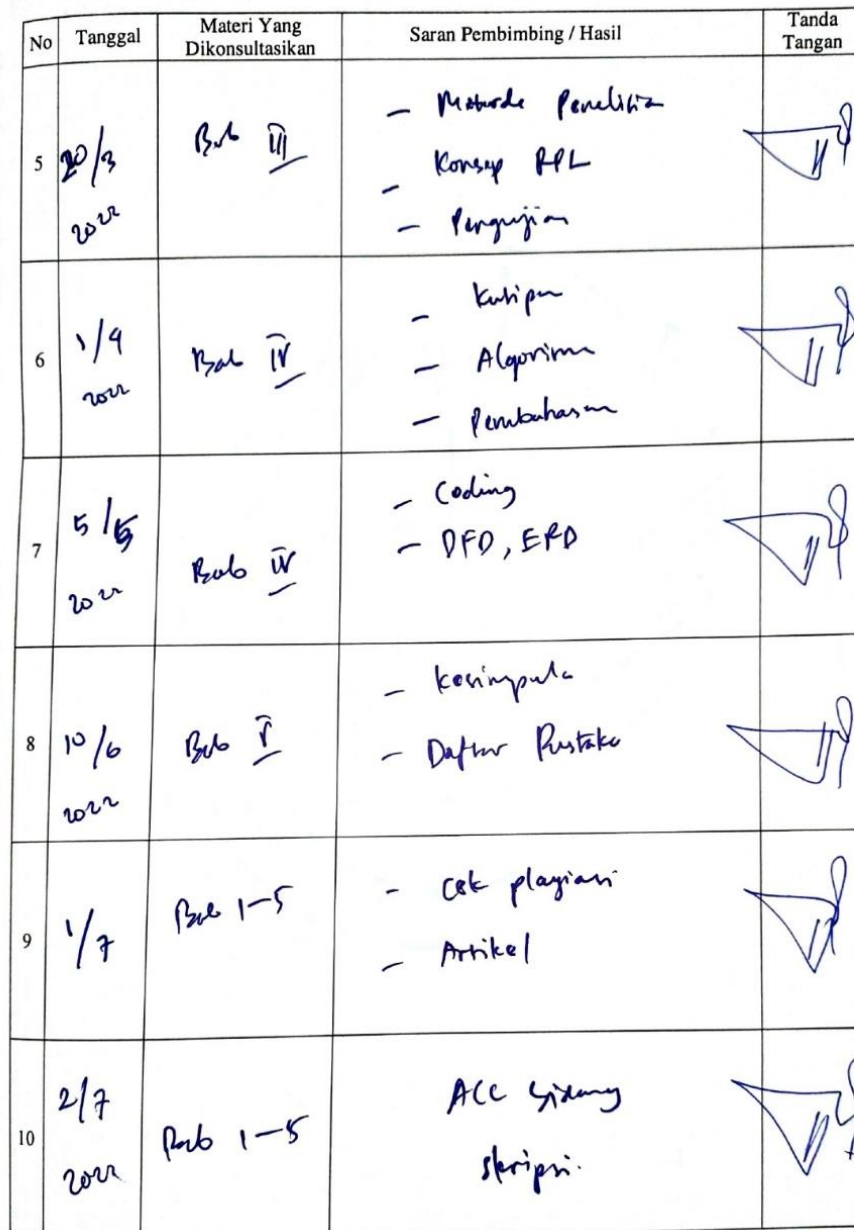 No Tanggal Materi Yang Dikonsultasikan Saran Pembimbing / Hasil Tanda Tangan
5 20/3 2022 Bab III
- Metode Penelitian
- Konsep RPL
- Pengujian
6 1/4 2022 Bab IV
- Kutipan
- Algoritma
- Pembahasan
7 5/5 2022 Bab IV
- Coding
- DFD, ERD
8 10/6 2022 Bab V
- Kesimpulan
- Daftar Pustaka
9 1/7 Bab 1-5
- Cek plagiasi
- Artikel
10 2/7 2022 Bab 1-5
ACC Sidang
skripsi.